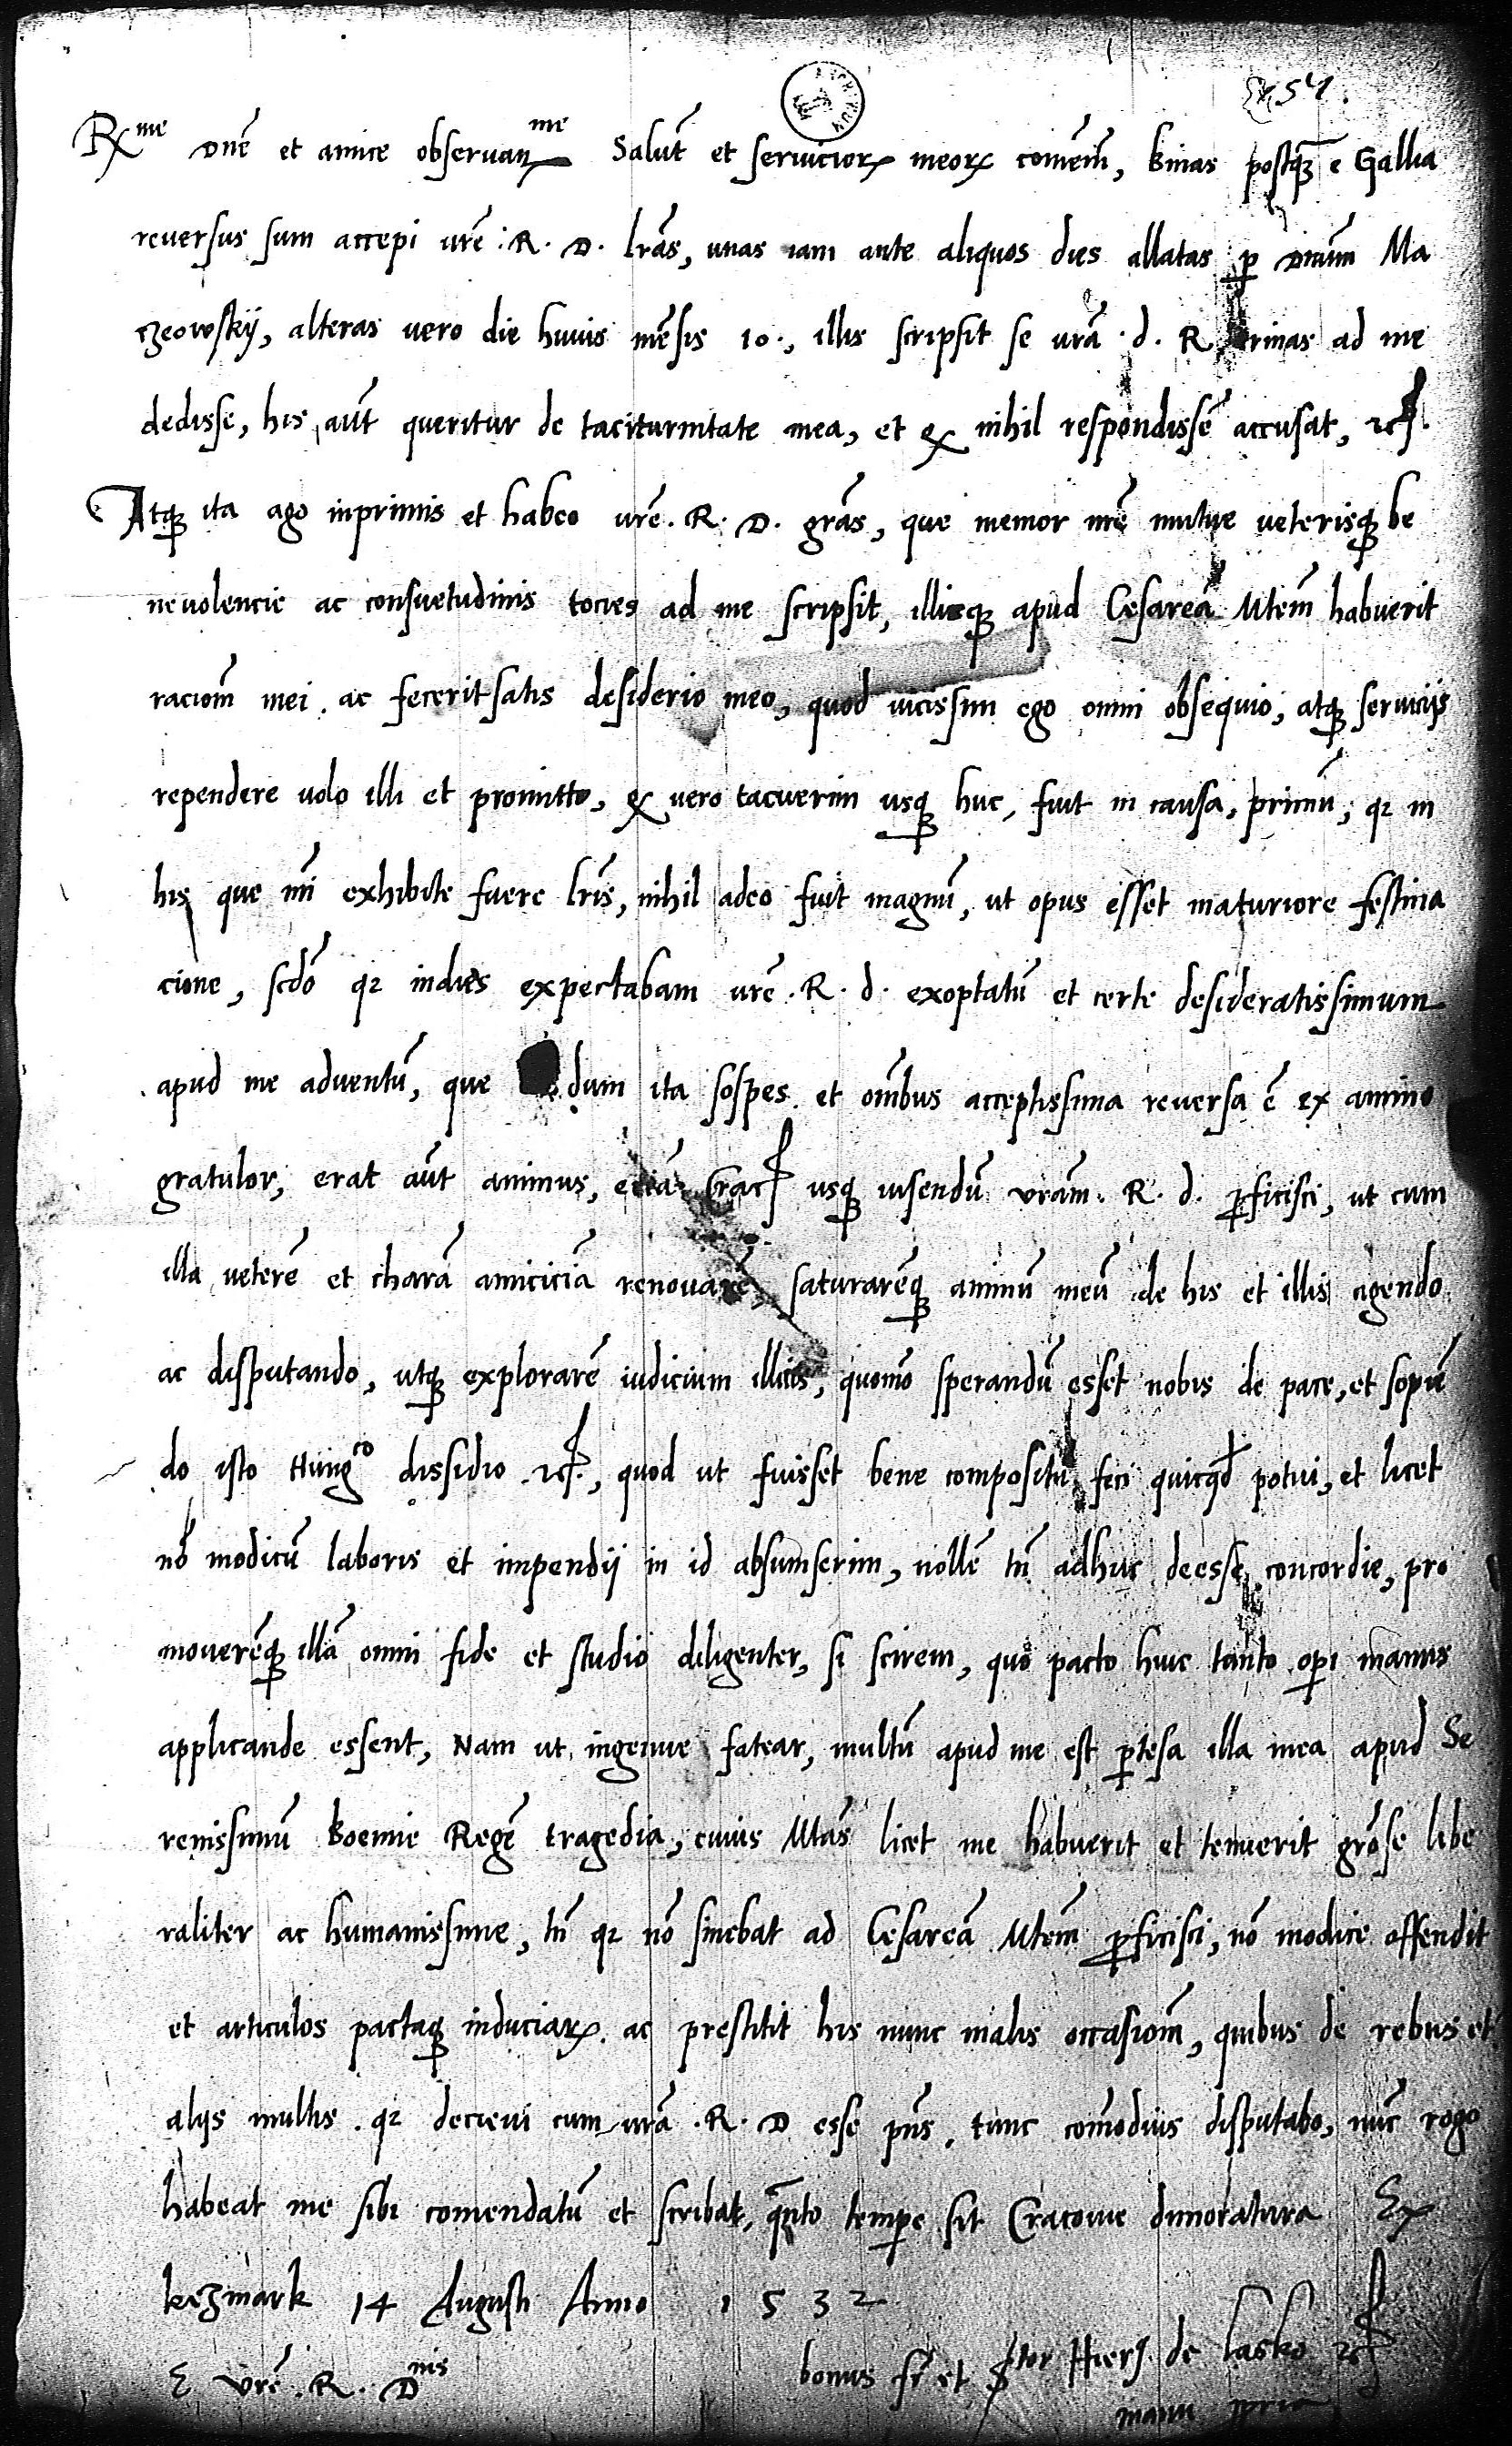 54.
Rme Dne et amice observanme Salut et servicior meor comem, Binas postq e Gallia
reversus sum accepi vre. R. D. lras, unas iam ante aliquos dies allatas p Dnum Ma
czeowskÿ, alteras vero die huius mēsis 10., illis scripsit se vrā. d. R. trinas ad me
dedisse, his aūt queritur de taciturnitate mea, et q nihil respondissē accusat, etc.
Atq ita ago inprimis et habeo vre. R. D. grās, que memor nrē mutue veterisq be
nevolencie ac consuetudinis tocies ad me scripsit, illicq apud Cesareā Mtem habuerit
raciom mei. ac fecerit satis desiderio meo, quod vicissim ego omni obsequio, atq servicijs
rependere volo illi et promitto, q vero tacuerim usq huc, fuit in causa, primū, q in
his que mi exhibite fuere lris, nihil adeo fuit magnū, ut opus esset maturiore festina
cione, scdō q indies expectabam vrē. R. d. exoptatū et certe desideratissimum
apud me adventū, que dum ita sospes et omībus acceptissima reversa ē ex animo
gratulor, erat aūt animus, eciā Crac usq visendū vram. R. d. pficisci, ut cum
illa veterē et charā amiciciā renovarē, saturarēq animū meū de his et illis agendo
ac disputando, utq explorarē iudicium illius, quomo sperandū esset nobis de pace, et sopiē
do isto Hungco dissidio etc., quod ut fuisset bene compositū feci quicqd potui, et licet
nō modicū laboris et impendij in id absumserim, nollē tn adhuc deesse concordie, pro
moverēq illā omni fide et studio diligenter, si scirem, quo pacto huic tanto opi manus
applicande essent, Nam ut ingenue fatear, multū apud me est ptesa illa mea apud Se
renissimū Boemie Regē tragedia, cuius Mtas licet me habuerit et tenuerit grōse libe
raliter ac humanissime, tn q nō sinebat ad Cesareā Mtem pficisci, nō modice offendit
et articulos pactaq induciar. ac prestitit his nunc malis occasiom, quibus de rebus et
alijs multis. q decrevi cum vrā. R. D esse pns, tunc comodius disputabo, nūc rogo
habeat me sibi comendatū et scribat, qnto tempe sit Cracovie dimoratura Ex
kezmark 14 Augusti Anno 1532
E vrē. R. Dnis
bonus fr et ster Hier de Lasko etc
manu ppria